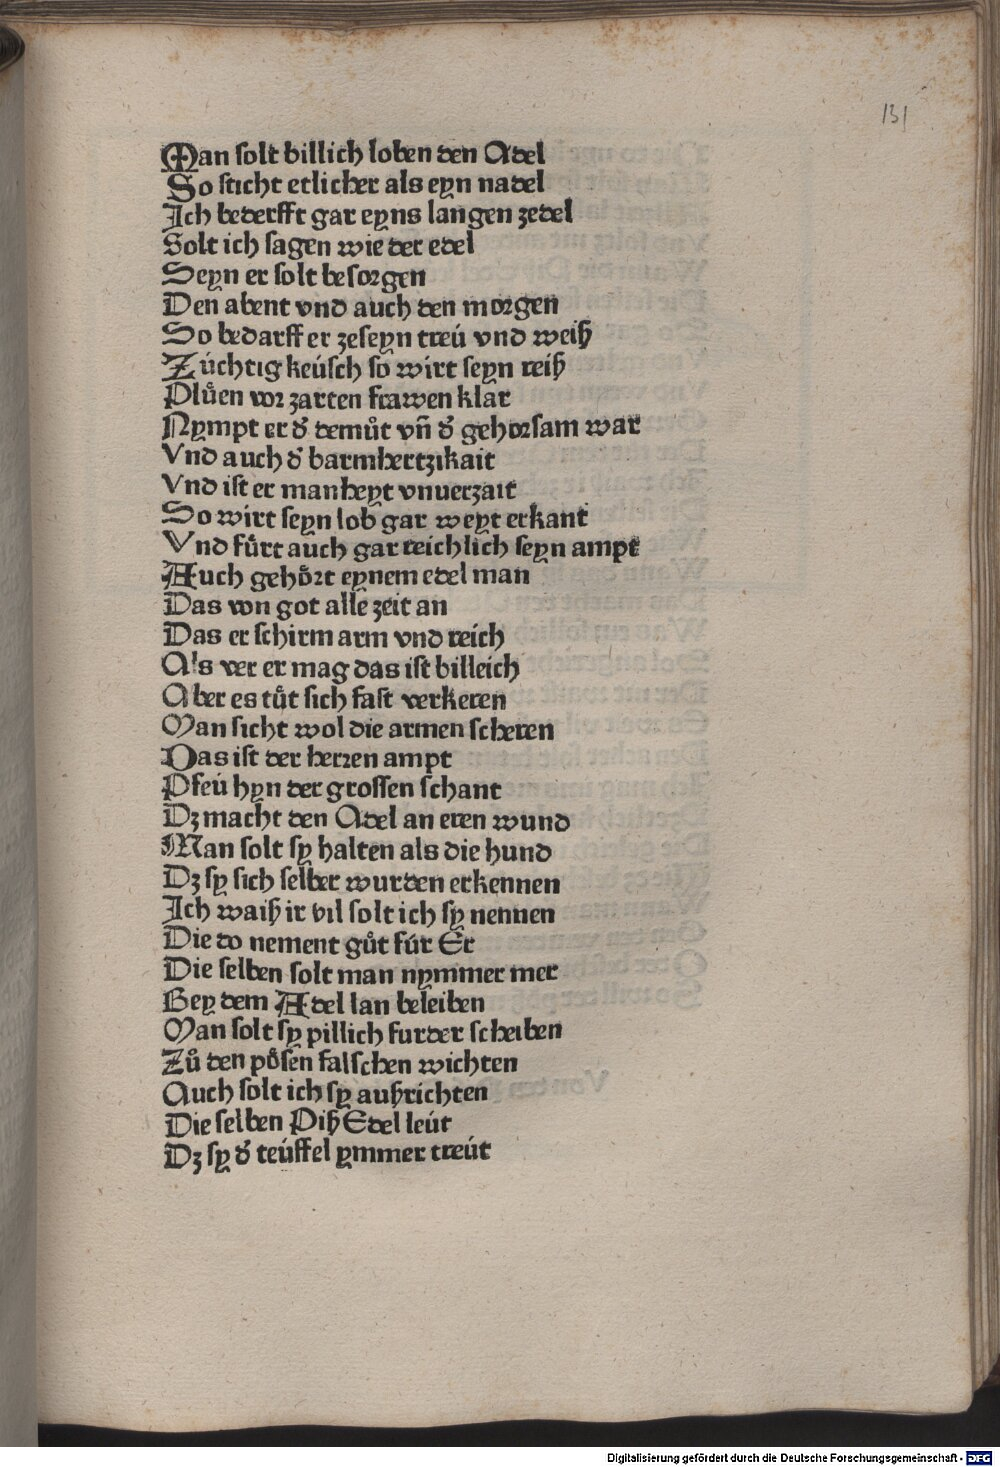 131
Man solt billich loben den Adel
So sticht etlicher als eyn nadel
Ich bederfft gar eyns langen zedel
Solt ich sagen wie der edel
Seyn er solt besorgen
Den abent vnd auch den morgen
So bedarff er zeseyn treú vnd weiß
Zúchtig keúsch so wirt seyn reiß
Plůen vor zarten frawen klar
Nympt er d᷑ demůt vn̄ d᷑ gehorsam war
Vnd auch d᷑ barmhertzikait
Vnd ist er manheyt vnuerzait
So wirt seyn lob gar weyt erkant
Vnd fůrt auch gar reichlich seyn ampt
Auch gehoͤrt eynem edel man
Das von got alle zeit an
Das er schirm arm vnd reich
Als ver er mag das ist billeich
Aber es tůt sich fast verkeren
Man sicht wol die armen scheren
Das ist der herren ampt
Pfeú hyn der grossen schant
Dz macht den Adel an eren wund
Man solt sy halten als die hund
Dz sy sich selber wurden erkennen
Ich waiß ir vil solt ich sy nennen
Die do nement gůt fúr Er
Die selben solt man nymmer mer
Bey dem Adel lan beleiben
Man solt sy pillich furder scheiben
Zů den poͤsen falschen wichten
Auch solt ich sy außrichten
Die selben Piß Edel leút
Dz sy d᷑ teúffel ymmer treút
Digitalisierung gefördert durch die Deutsche Forschungsgemeinschaft - DFG